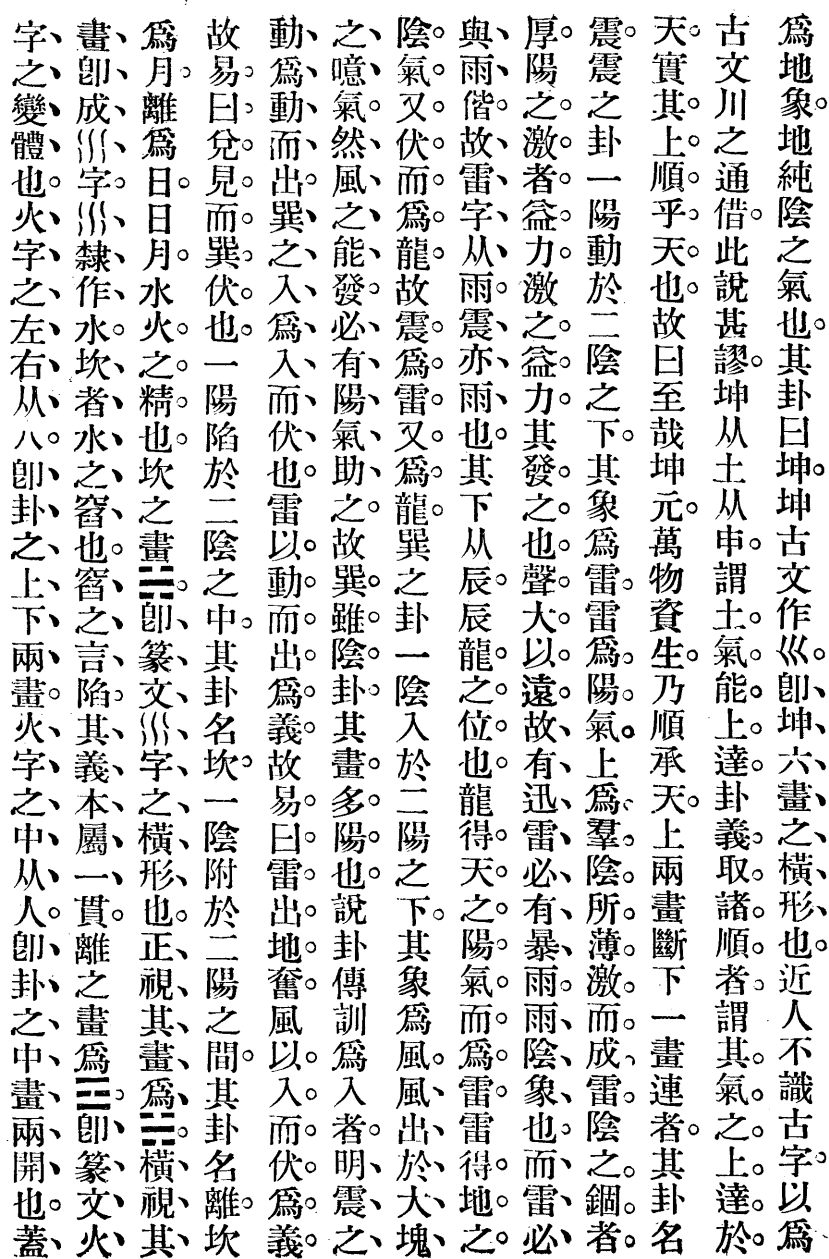 爲地象。地純陰之氣也。其卦曰坤。坤古文作巛。卽、坤、六、畫、之、橫、形、也。近人不識古字。以爲
古文川之通借。此說甚謬。坤从土从申。謂土。氣能上達。卦義取諸順者。謂其氣之上達於
天。實其上順乎天也。故曰至哉坤元。萬物資生。乃順承天。上兩畫斷下一畫連者。其卦名
震。震之卦一陽動於二陰之下。其象爲雷。雷爲陽氣。上爲羣陰所薄激而成雷。陰之錮者。
厚。陽之激者益力。激之益力。其發之也聲大以遠。故、有、迅、雷、必、有、暴、雨。雨、陰、象、也。而、雷、必、
與、雨、偕。故、雷、字、从、雨。震、亦、雨、也。其下从辰。辰龍之位也。龍得天之陽氣而爲雷。雷得地之
陰氣又伏而爲龍。故震爲雷。又爲龍。巽之卦一陰入於二陽之下。其象爲風。風、出、於、大、塊、
之、噫、氣。然、風、之、能、發。必、有、陽、氣、助、之。故巽雖陰卦。其畫多陽也。說卦傳訓爲入者。明、震、之、
動、爲、動、而、出。巽、之、入、爲、入、而、伏、也。雷以動而出爲義。故易曰雷出地奮。風以入而伏爲義。
故易曰。兌見而巽伏也。一陽陷於二陰之中。其卦名坎。一陰附於二陽之間。其卦名離。坎
爲月。離爲日。日月。水火之精也。坎之畫☵。卽、篆、文、巛、字、之、橫、形、也。正、視、其、畫、爲、☵。橫、視、其、
畫、卽、成、巛、字。巛、隸、作、水。坎、者、水、之、窞、也。窞、之、言、陷。其、義、本、屬、一、貫。離之畫爲☲。卽、篆、文、火、
字、之、變、體、也。火、字、之、左、右、从、八。卽、卦、之、上、下、兩、畫。火、字、之、中、从、人。卽、卦、之、中、畫、兩、開、也。蓋、